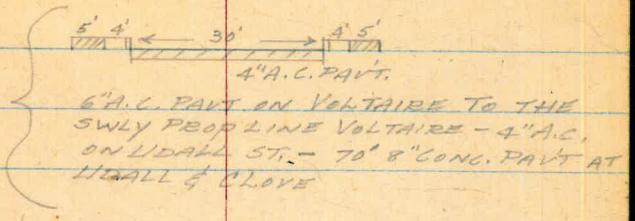 5' 4' 30' 4' 5'
4" A.C. PAV'T.
6" A.C. PAVT ON VOLTAIRE TO THE
SWLY PROP LINE VOLTAIRE - 4" A.C.
ON UDALL ST. - 70' 8" CONC. PAV'T AT
UDALL & CLOVE